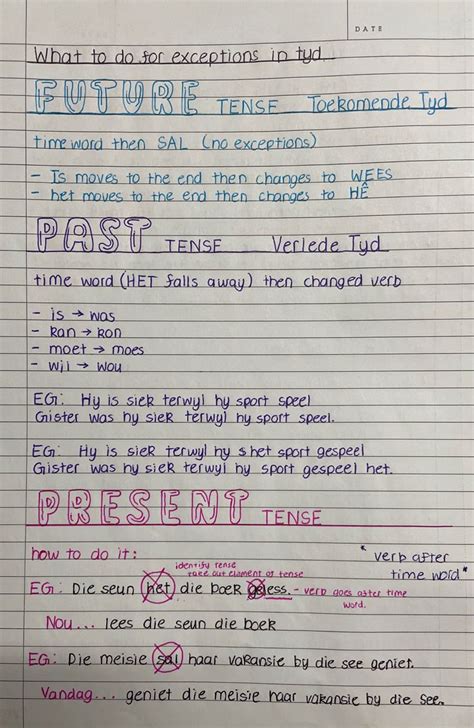 DATE
What to do for exceptions in tyd
FUTURE TENSE Toekomende Tyd
time word then SAL (no exceptions)
- Is moves to the end then changes to WEES
- het moves to the end then changes to HÊ
PAST TENSE Verlede Tyd
time word (HET falls away) then changed verb
- is → was
- kan → kon
- moet → moes
- wil → wou
EG: Hy is siek terwyl hy sport speel
Gister was hy siek terwyl hy sport speel.
EG: Hy is siek terwyl hy s het sport gespeel
Gister was hy siek terwyl hy sport gespeel het.
PRESENT TENSE
how to do it:
* verb after
time word *
identify tense
take out element of tense
EG: Die seun het die boek geless. - verb goes after time
word.
Nou... lees die seun die boek
EG: Die meisie sal haar vakansie by die see geniet.
Vandag... geniet die meisie haar vakansie by die see.